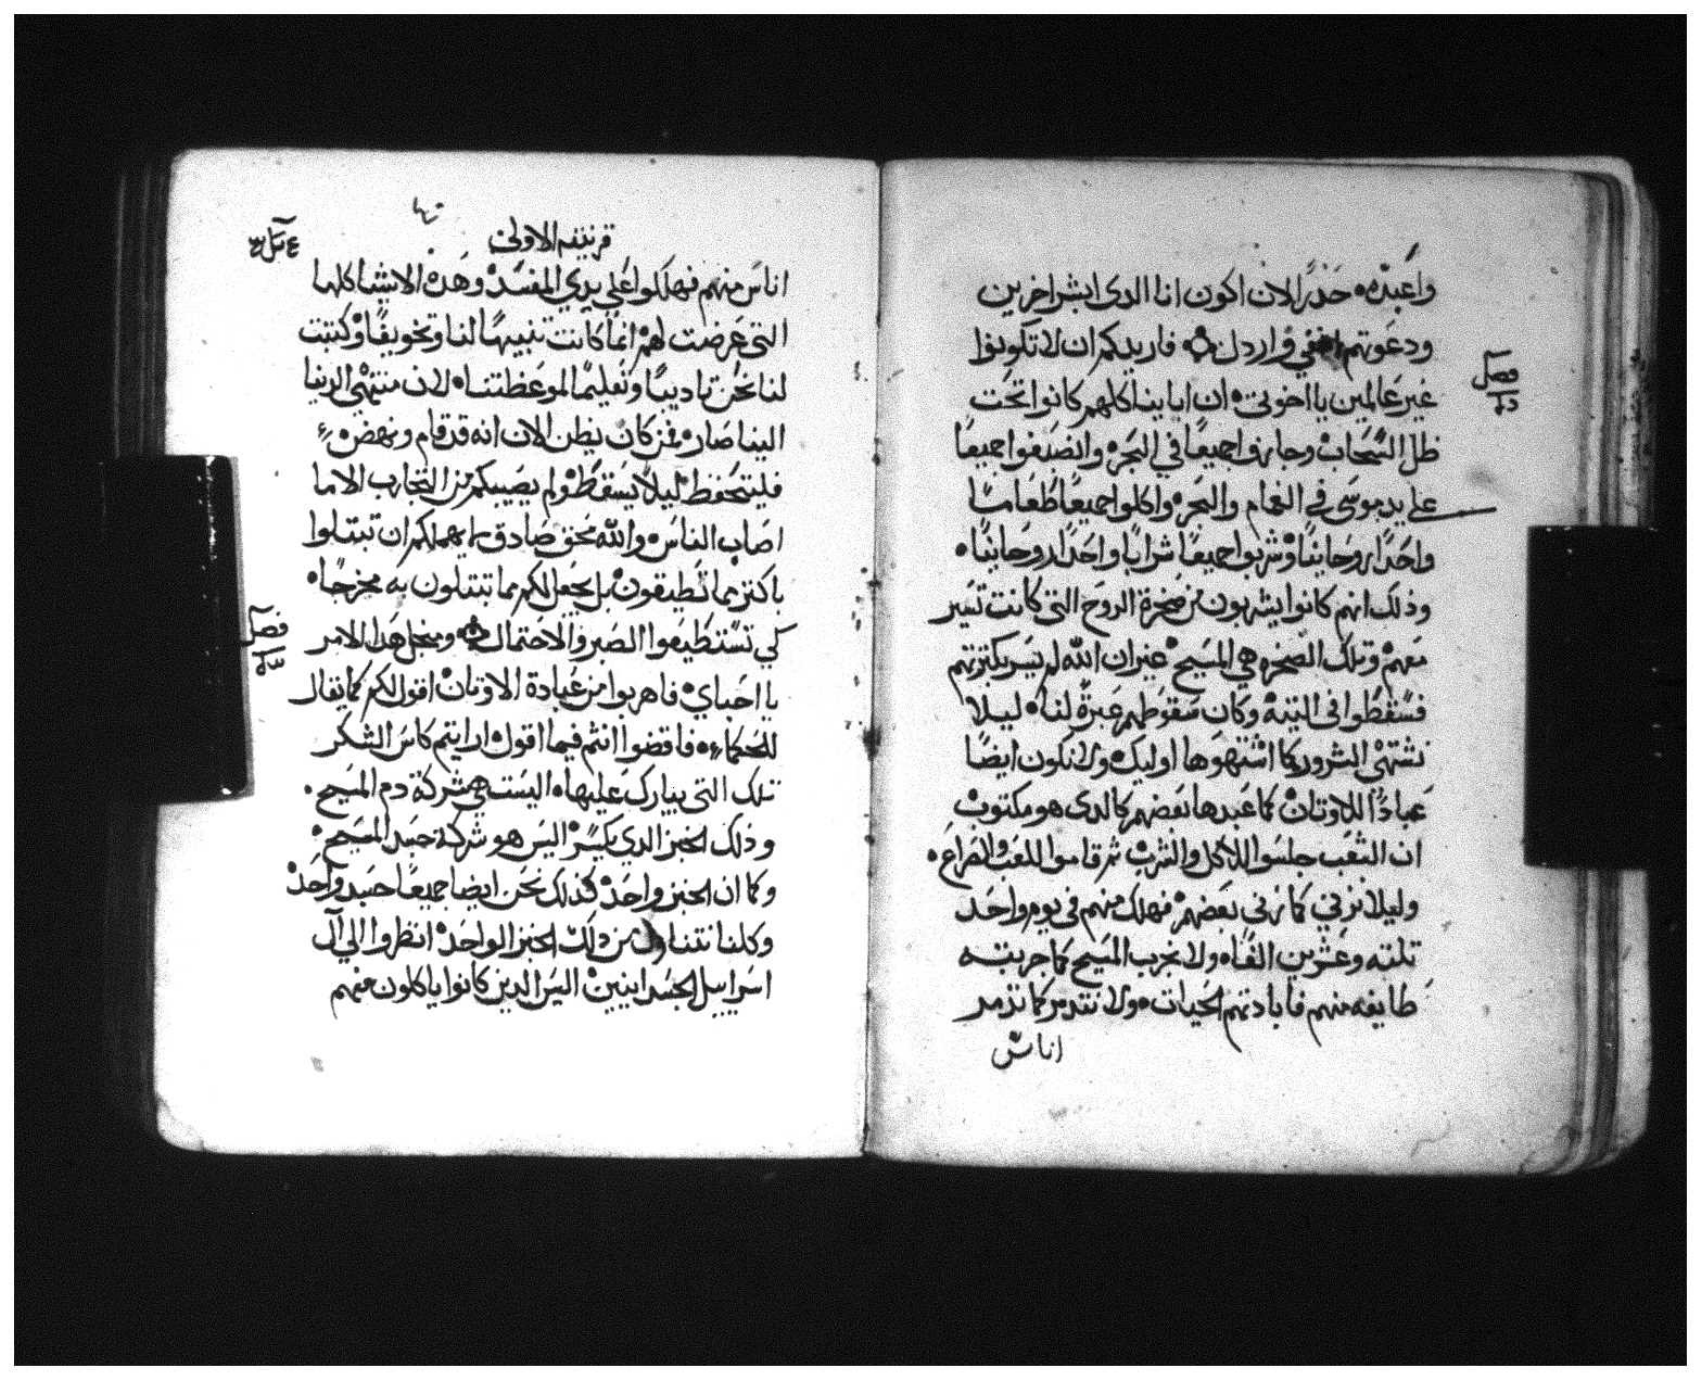 واعبده حذرا لان اكون انا الدى ابشر اخرين
ودعوتهم في واردل فاريدكم ان لا تكونوا
فصل
غير عالمين يا اخوتي ان ابانا كلهم كانوا تحت
ظل السحاب وجازوا جميعا في البحر وانصبغوا جميعا
على يد موسى في الغمام والبحر واكلوا جميعا طعاما
واحدا روحانيا وشربوا جميعا شرابا واحدا روحانيا
وذلك انهم كانوا يشربون من صخرة الروح التى كانت تسير
معهم وتلك الصخره هي المسيح غير ان الله لم يسر بكثرتهم
فسقطوا فى التيه وكان سقوطهم عبرة لنا ليلا
نشتهي الشرور كما اشتهوها اوليك ولا نكون ايضا
عبادا للاوتان كما عبدها بعضهم كالدى هو مكتوب
ان الشعب جلسوا للاكل والشرب ثم قاموا للعب والصراع
وليلا نزني كما زني بعضهم فهلك منهم في يوم واحد
تلته وعشرين الفا ولا نجرب المسيح كما جربته
طايفه منهم فابادتهم الحيات ولا نتدمر كما تدمر
اناس
قرنتيه الاولى
اناس منهم فهلكوا على يدي المفسد وهده الاشيا كلها
التى عرضت لهم انما كانت تنبيها لنا وتخويفا وكتبت
لنا نحن تاديبا وتعليما لموعظتنا لان منتهي الدنيا
الينا صار فمن كان يظن الان انه قد قام ونهض
فليتحفظ ليلا يسقط ولم يصيبكم من التجارب الا ما
اصاب الناس والله محق صادق لا يهملكم ان تبتلوا
باكتر مما تطيقون بل يجعل لكم مما تبتلون به مخرجا
كي تستطيعوا الصبر والاحتمال ومنجل هدا الامر
فصل
يا احباي فاهربوا من عبادة الاوتان اقول لكم كما يقال
للحكماء فاقضوا انتم فيما اقول ارايتم كاس الشكر
تلك التى يبارك عليها اليست هي شركة دم المسيح
وذلك الخبز الدي يكسر اليس هو شركة جسد المسيح
وكما ان الخبز واحد كذلك نحن ايضا جميعا جسد واحد
وكلنا نتناول من دلك الخبز الواحد انظروا الي آل
اسراييل الجسدانيين اليس الدين كانوا ياكلون منهم